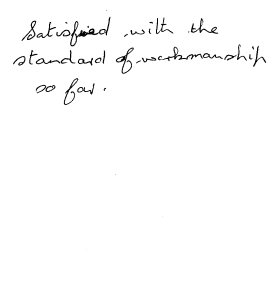 Satisfied with the
standard of workmanship
so far.